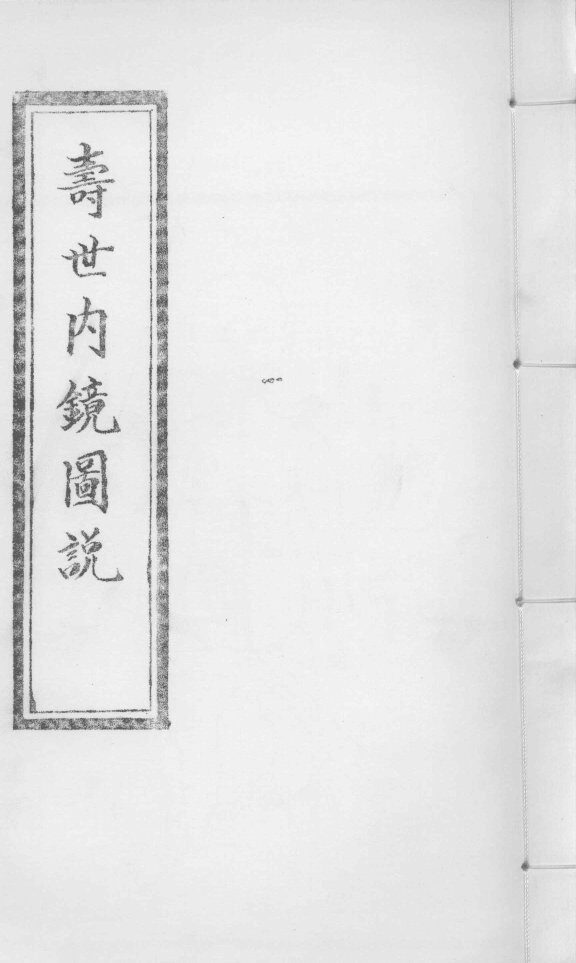 壽世内鏡圖説